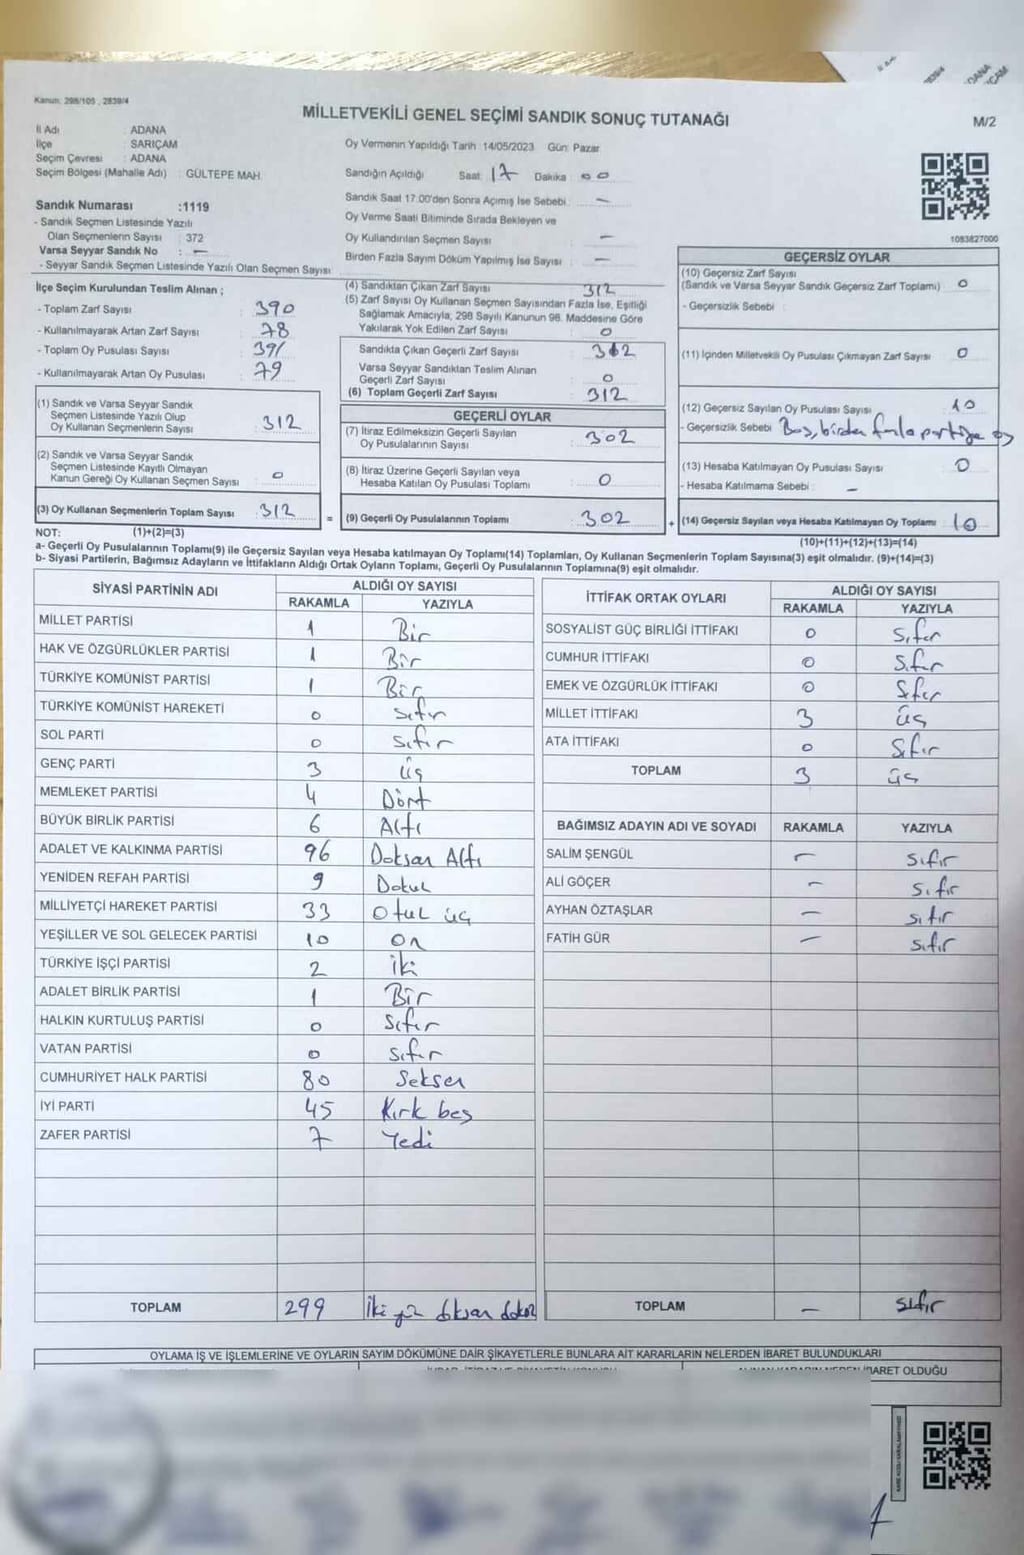 Kanun: 298/105 , 2839/4
MİLLETVEKİLİ GENEL SEÇİMİ SANDIK SONUÇ TUTANAĞI
M/2
İl Adı : ADANA
İlçe : SARIÇAM
Seçim Çevresi : ADANA
Seçim Bölgesi (Mahalle Adı) : GÜLTEPE MAH.
Sandık Numarası :1119
- Sandık Seçmen Listesinde Yazılı
Olan Seçmenlerin Sayısı : 372
Varsa Seyyar Sandık No : —
- Seyyar Sandık Seçmen Listesinde Yazılı Olan Seçmen Sayısı
Oy Vermenin Yapıldığı Tarih :14/05/2023 Gün: Pazar
Sandığın Açıldığı Saat: 17 Dakika : 00
Sandık Saat 17:00'den Sonra Açımış İse Sebebi : —
Oy Verme Saati Bitiminde Sırada Bekleyen ve
Oy Kullandırılan Seçmen Sayısı : —
Birden Fazla Sayım Döküm Yapılmış İse Sayısı : —
1083827000
İlçe Seçim Kurulundan Teslim Alınan ;
- Toplam Zarf Sayısı : 390
- Kullanılmayarak Artan Zarf Sayısı : 78
- Toplam Oy Pusulası Sayısı : 391
- Kullanılmayarak Artan Oy Pusulası : 79
(1) Sandık ve Varsa Seyyar Sandık
Seçmen Listesinde Yazılı Olup
Oy Kullanan Seçmenlerin Sayısı : 312
(2) Sandık ve Varsa Seyyar Sandık
Seçmen Listesinde Kayıtlı Olmayan
Kanun Gereği Oy Kullanan Seçmen Sayısı : 0
(3) Oy Kullanan Seçmenlerin Toplam Sayısı : 312
(4) Sandıktan Çıkan Zarf Sayısı : 312
(5) Zarf Sayısı Oy Kullanan Seçmen Sayısından Fazla İse, Eşitliği
Sağlamak Amacıyla, 298 Sayılı Kanunun 98. Maddesine Göre
Yakılarak Yok Edilen Zarf Sayısı : 0
Sandıkta Çıkan Geçerli Zarf Sayısı : 312
Varsa Seyyar Sandıktan Teslim Alınan
Geçerli Zarf Sayısı : 0
(6) Toplam Geçerli Zarf Sayısı : 312
GEÇERLİ OYLAR
(7) İtiraz Edilmeksizin Geçerli Sayılan
Oy Pusulalarının Sayısı : 302
(8) İtiraz Üzerine Geçerli Sayılan veya
Hesaba Katılan Oy Pusulası Toplamı : 0
= (9) Geçerli Oy Pusulalarının Toplamı : 302
GEÇERSİZ OYLAR
(10) Geçersiz Zarf Sayısı
(Sandık ve Varsa Seyyar Sandık Geçersiz Zarf Toplamı) : 0
- Geçersizlik Sebebi :
(11) İçinden Milletvekili Oy Pusulası Çıkmayan Zarf Sayısı : 0
(12) Geçersiz Sayılan Oy Pusulası Sayısı : 10
- Geçersizlik Sebebi : Boş, birden fazla partiye oy
(13) Hesaba Katılmayan Oy Pusulası Sayısı : 0
- Hesaba Katılmama Sebebi : —
+ (14) Geçersiz Sayılan veya Hesaba Katılmayan Oy Toplamı : 10
NOT: (1)+(2)=(3)
(10)+(11)+(12)+(13)=(14)
a- Geçerli Oy Pusulalarının Toplamı(9) ile Geçersiz Sayılan veya Hesaba katılmayan Oy Toplamı(14) Toplamları, Oy Kullanan Seçmenlerin Toplam Sayısına(3) eşit olmalıdır. (9)+(14)=(3)
b- Siyasi Partilerin, Bağımsız Adayların ve İttifakların Aldığı Ortak Oyların Toplamı, Geçerli Oy Pusulalarının Toplamına(9) eşit olmalıdır.
SİYASİ PARTİNİN ADI ALDIĞI OY SAYISI
RAKAMLA YAZIYLA
MİLLET PARTİSİ 1 Bir
HAK VE ÖZGÜRLÜKLER PARTİSİ 1 Bir
TÜRKİYE KOMÜNİST PARTİSİ 1 Bir
TÜRKİYE KOMÜNİST HAREKETİ 0 sıfır
SOL PARTİ 0 sıfır
GENÇ PARTİ 3 üç
MEMLEKET PARTİSİ 4 Dört
BÜYÜK BİRLİK PARTİSİ 6 Altı
ADALET VE KALKINMA PARTİSİ 96 Doksan Altı
YENİDEN REFAH PARTİSİ 9 Dokuz
MİLLİYETÇİ HAREKET PARTİSİ 33 Otuz üç
YEŞİLLER VE SOL GELECEK PARTİSİ 10 on
TÜRKİYE İŞÇİ PARTİSİ 2 iki
ADALET BİRLİK PARTİSİ 1 Bir
HALKIN KURTULUŞ PARTİSİ 0 Sıfır
VATAN PARTİSİ 0 sıfır
CUMHURİYET HALK PARTİSİ 80 Seksen
İYİ PARTİ 45 Kırk beş
ZAFER PARTİSİ 7 Yedi
TOPLAM 299 İki yüz doksan dokuz
İTTİFAK ORTAK OYLARI ALDIĞI OY SAYISI
RAKAMLA YAZIYLA
SOSYALİST GÜÇ BİRLİĞİ İTTİFAKI 0 sıfır
CUMHUR İTTİFAKI 0 sıfır
EMEK VE ÖZGÜRLÜK İTTİFAKI 0 sıfır
MİLLET İTTİFAKI 3 üç
ATA İTTİFAKI 0 sıfır
TOPLAM 3 üç
BAĞIMSIZ ADAYIN ADI VE SOYADI RAKAMLA YAZIYLA
SALİM ŞENGÜL — sıfır
ALİ GÖÇER — sıfır
AYHAN ÖZTAŞLAR — sıfır
FATİH GÜR — sıfır
TOPLAM — sıfır
OYLAMA İŞ VE İŞLEMLERİNE VE OYLARIN SAYIM DÖKÜMÜNE DAİR ŞİKAYETLERLE BUNLARA AİT KARARLARIN NELERDEN İBARET BULUNDUKLARI
İBARET OLDUĞU